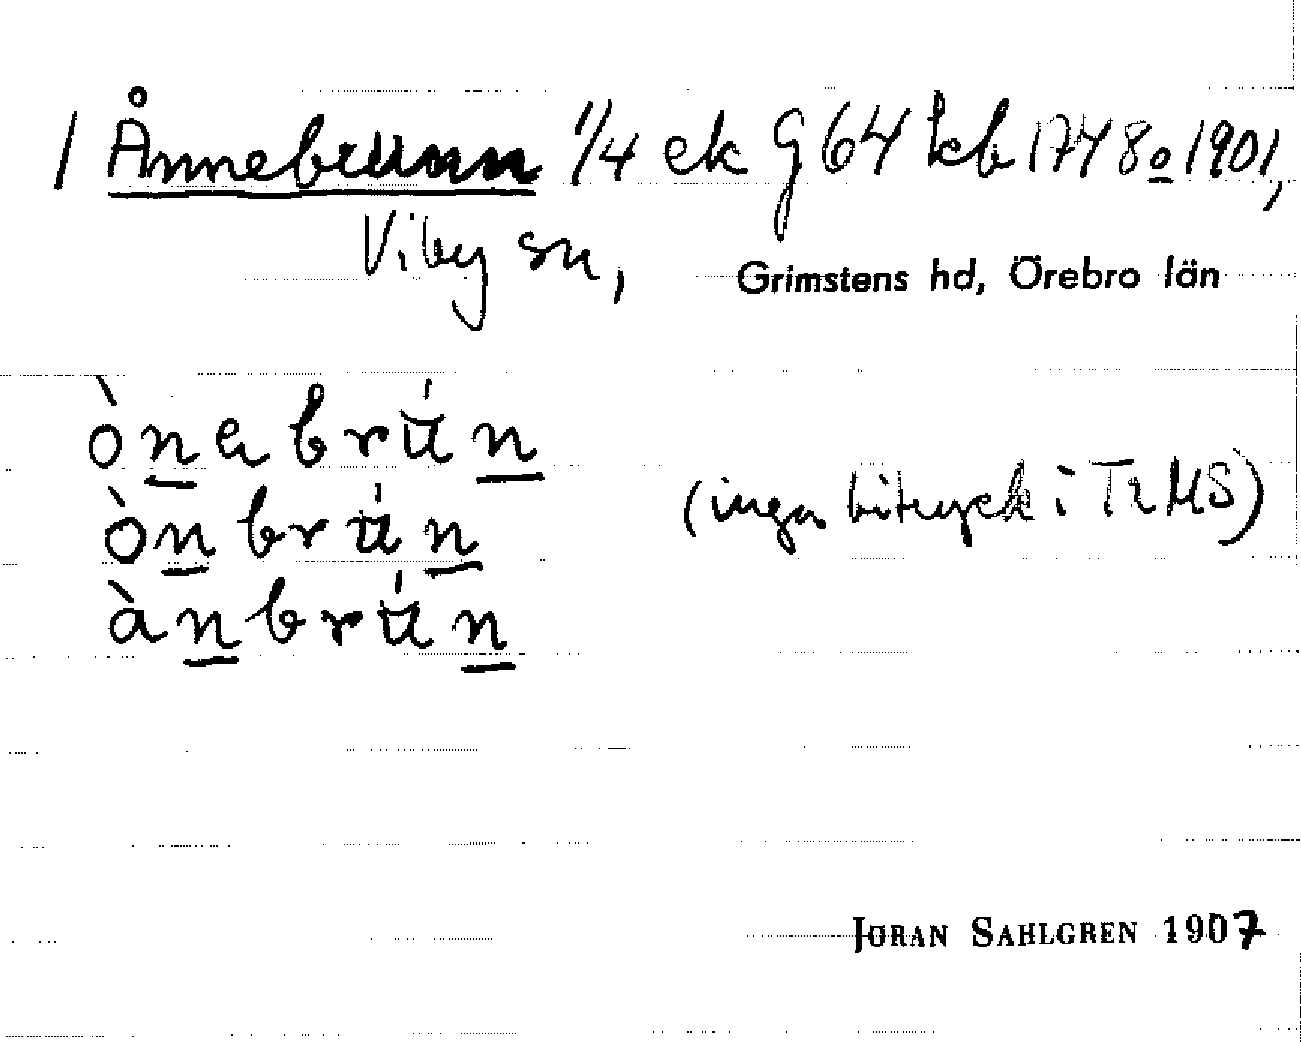 / Ånnebrunn 1/4 ek G 64 kb 1748 o 1901,
Viby sn,
Grimstens hd, Örebro län
ònabrún
ònbrún
(inga bitryck i TrMS)
ànbrún
JÖRAN SAHLGREN 1907